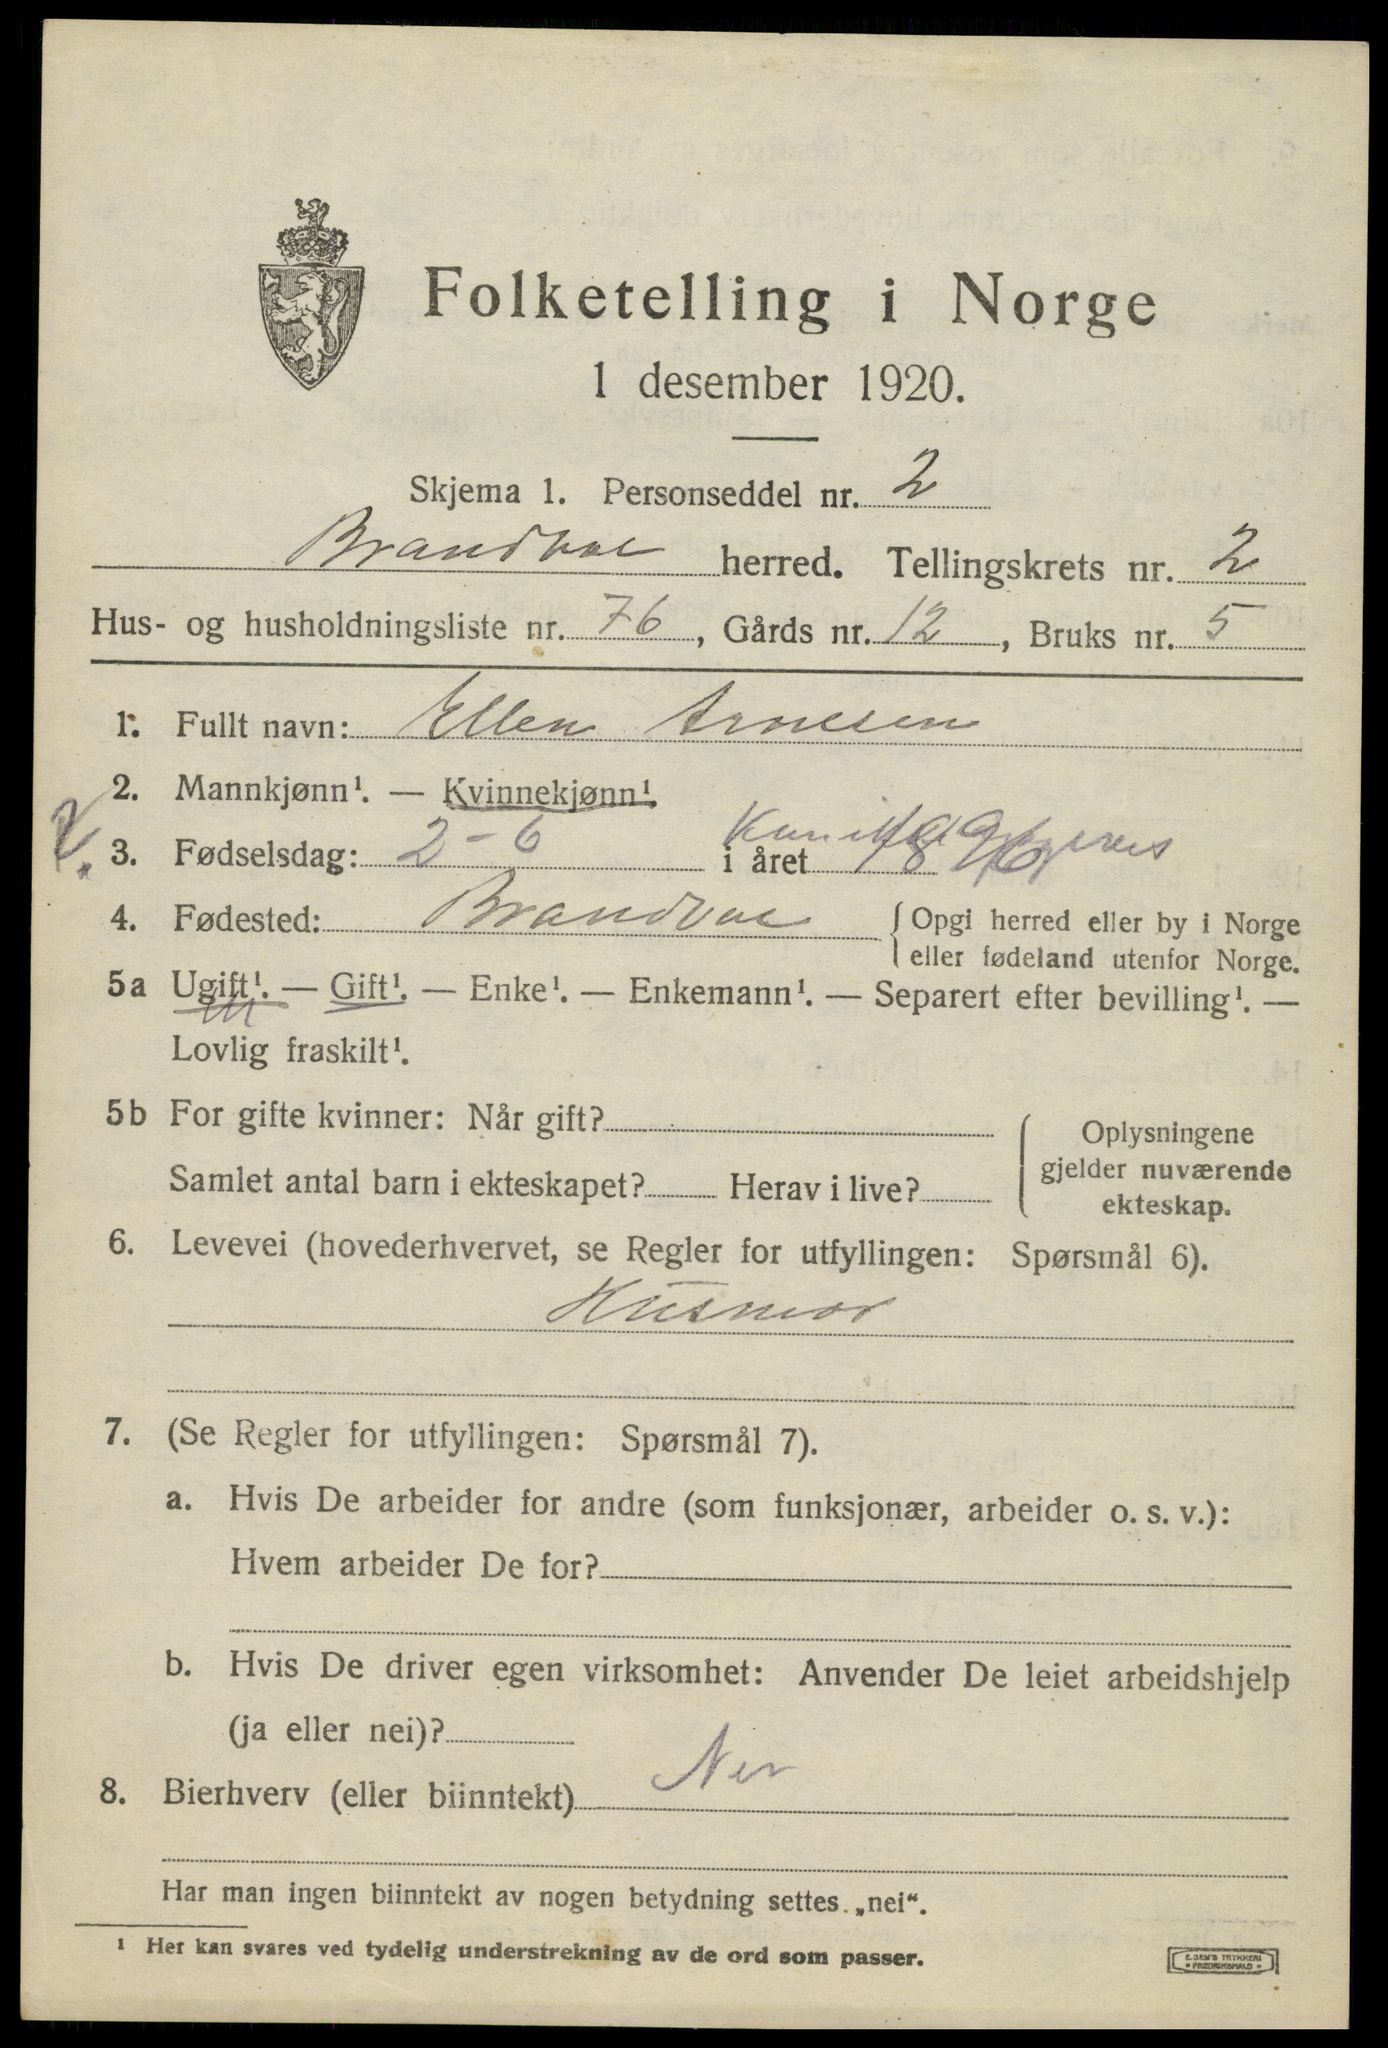 Folketelling i Norge
1 desember 1920.
Skjema 1. Personseddel nr. 2
Brandval herred. Tellingskrets nr. 2
Hus- og husholdningsliste nr. 76, Gårds nr. 12, Bruks nr. 5
1. Fullt navn: Ellen Arnesen
2. Mannkjønn¹. — Kvinnekjønn¹.
3. Fødselsdag: 2-6 i året
4. Fødested: Brandval { Opgi herred eller by i Norge
eller fødeland utenfor Norge.
5a Ugift¹. — Gift¹. — Enke¹. — Enkemann¹. — Separert efter bevilling¹. —
Lovlig fraskilt¹.
5b For gifte kvinner: Når gift?
Samlet antal barn i ekteskapet? Herav i live?
{ Oplysningene
gjelder nuværende
ekteskap.
6. Levevei (hovederhvervet, se Regler for utfyllingen: Spørsmål 6).
Husmor
7. (Se Regler for utfyllingen: Spørsmål 7).
a. Hvis De arbeider for andre (som funksjonær, arbeider o. s. v.):
Hvem arbeider De for?
b. Hvis De driver egen virksomhet: Anvender De leiet arbeidshjelp
(ja eller nei)?
8. Bierhverv (eller biinntekt) Nei
Har man ingen biinntekt av nogen betydning settes „nei“.
¹ Her kan svares ved tydelig understrekning av de ord som passer.
E. SEM'S TRYKKERI
* FREDRIKSHALD *